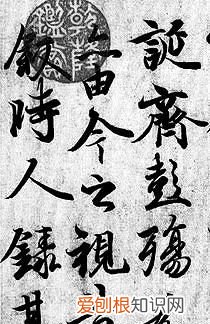 誕齊彭殤為
亦由今之視
敘時人錄其
乾隆鑒賞
爱刨根知识网